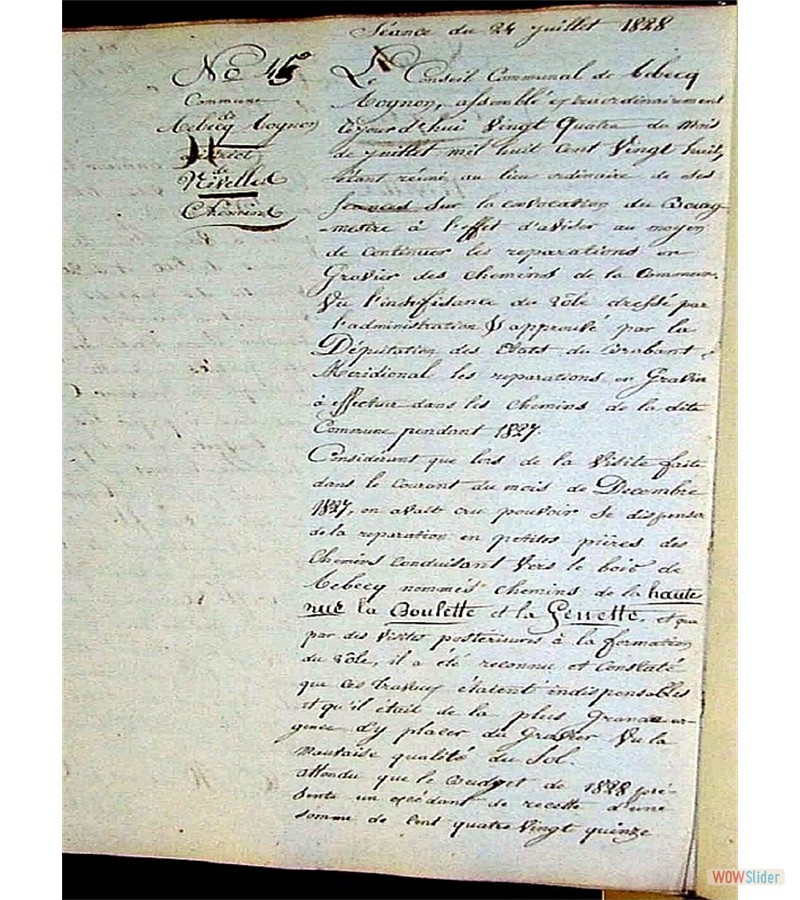 Séance du 24 juillet 1828
No 45
Commune
de
Rebecq Rognon
District
de
Nivelles
Chemins
Le Conseil Communal de Rebecq
Rognon, assemblé extraordinairement
cejourd'hui Vingt Quatre du Mois
de juillet mil huit Cent Vingt huit,
s'étant réuni au lieu ordinaire de ses
séances sur la convocation du Bourg
-mestre à l'effet d'aviser au moyen
de continuer les reparations en
Gravier des chemins de la Commune.
Vu l'insuffisance du rôle dressé par
l'administration & approuvé par la
Députation des Etats du Brabant
Meridional les reparations en Gravier
à effectuer dans les chemins de la dite
Commune pendant 1827.
Considerant que lors de la Visite faite
dans le Courant du mois de Decembre
1827, on avait cru pouvoir se dispenser
de la reparation en petites pières des
Chemins Conduisant Vers le bois de
Rebecq nommés chemins de la haute
rue la Boulette et la Genette, et que
par des Visites posterieures à la formation
du rôle, il a été reconnu et Constaté
que ces travaux étaient indispensables
et qu'il était de la plus Grande ur-
gence d'y placer du Gravier Vu la
Mauvaise qualité du Sol.
attendu que le Budget de 1828 pré-
sente un excédant de recette d'une
somme de Cent quatre Vingt quinze
WOWSlider